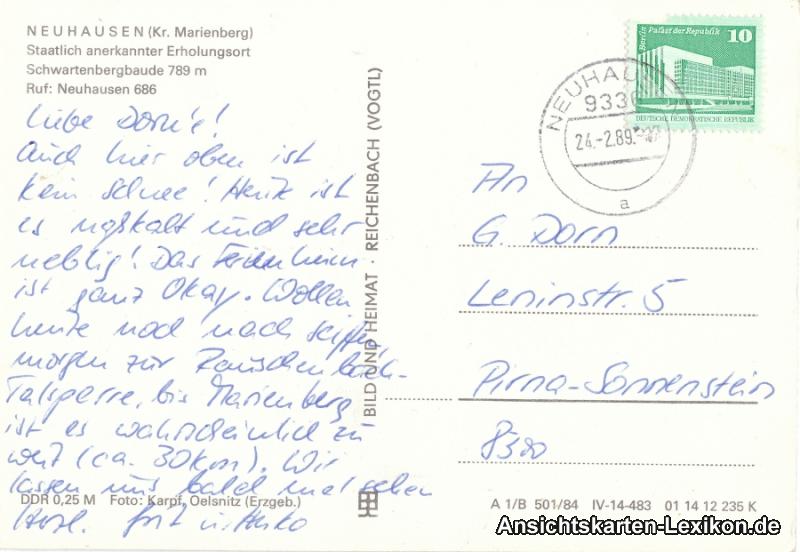 NEUHAUSEN (Kr. Marienberg)
Staatlich anerkannter Erholungsort
Schwartenbergbaude 789 m
Ruf: Neuhausen 686
Liebe Dorn's!
Auch hier oben ist
kein Schnee! Heute ist
es naßkalt und sehr
neblig! Das Ferienheim
ist ganz Okay. Wollen
heute noch nach Seiffen,
morgen zur Rauschenbach-
Talsperre, bis Marienberg
ist es wahrscheinlich zu
weit (ca. 30km). Wir
lassen uns bald mal sehen
Herzl.
DDR 0,25 M Foto: Karpf, Oelsnitz (Erzgeb.)
BILD UND HEIMAT · REICHENBACH (VOGTL)
Berlin Palast der Republik 10
DEUTSCHE DEMOKRATISCHE REPUBLIK
NEUHAU
9330
24.-2.89.
a
An
G. Dorn
Leninstr. 5
Pirna-Sonnenstein
8300
A 1/B 501/84 IV-14-483 01 14 12 235 K
Ansichtskarten-Lexikon.de